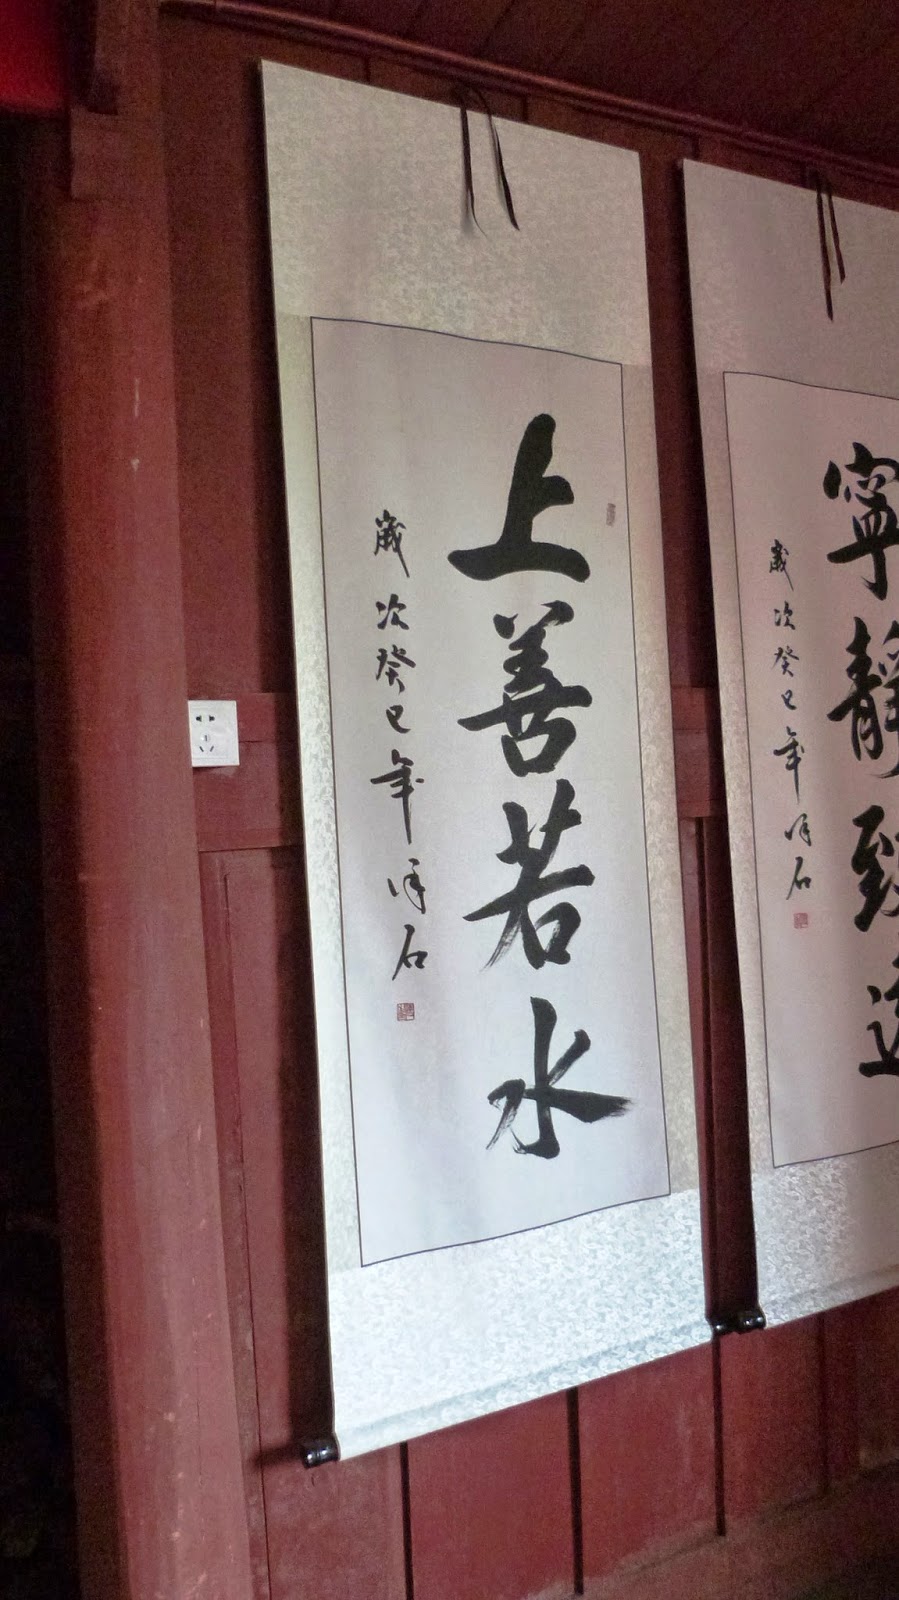 上善若水
歲次癸巳年
石
寧靜致遠
歲次癸巳年
石